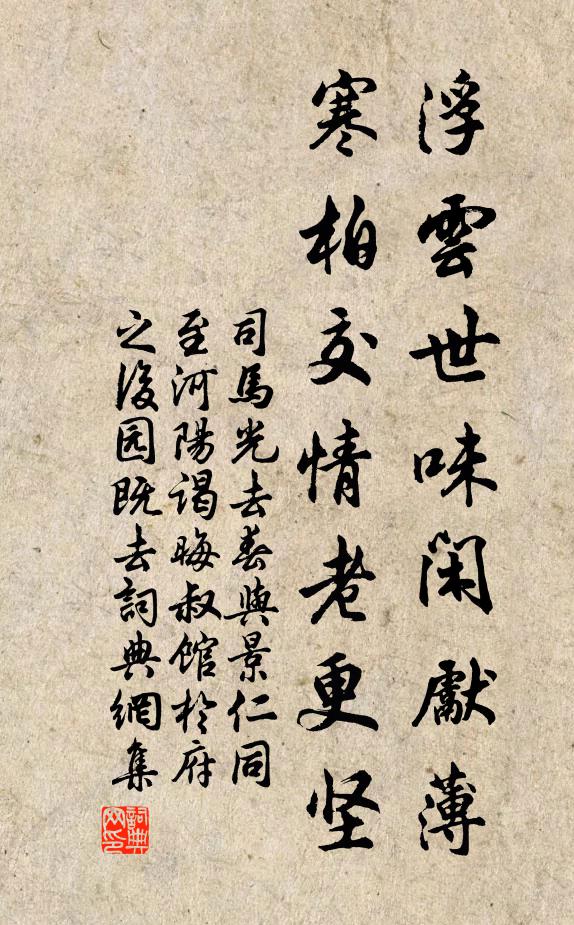 浮雲世味閑獻薄
寒柏交情老更坚
司馬光去春與景仁同
至河陽謁晦叔館於府
之後园既去詞典網集
詞典网印